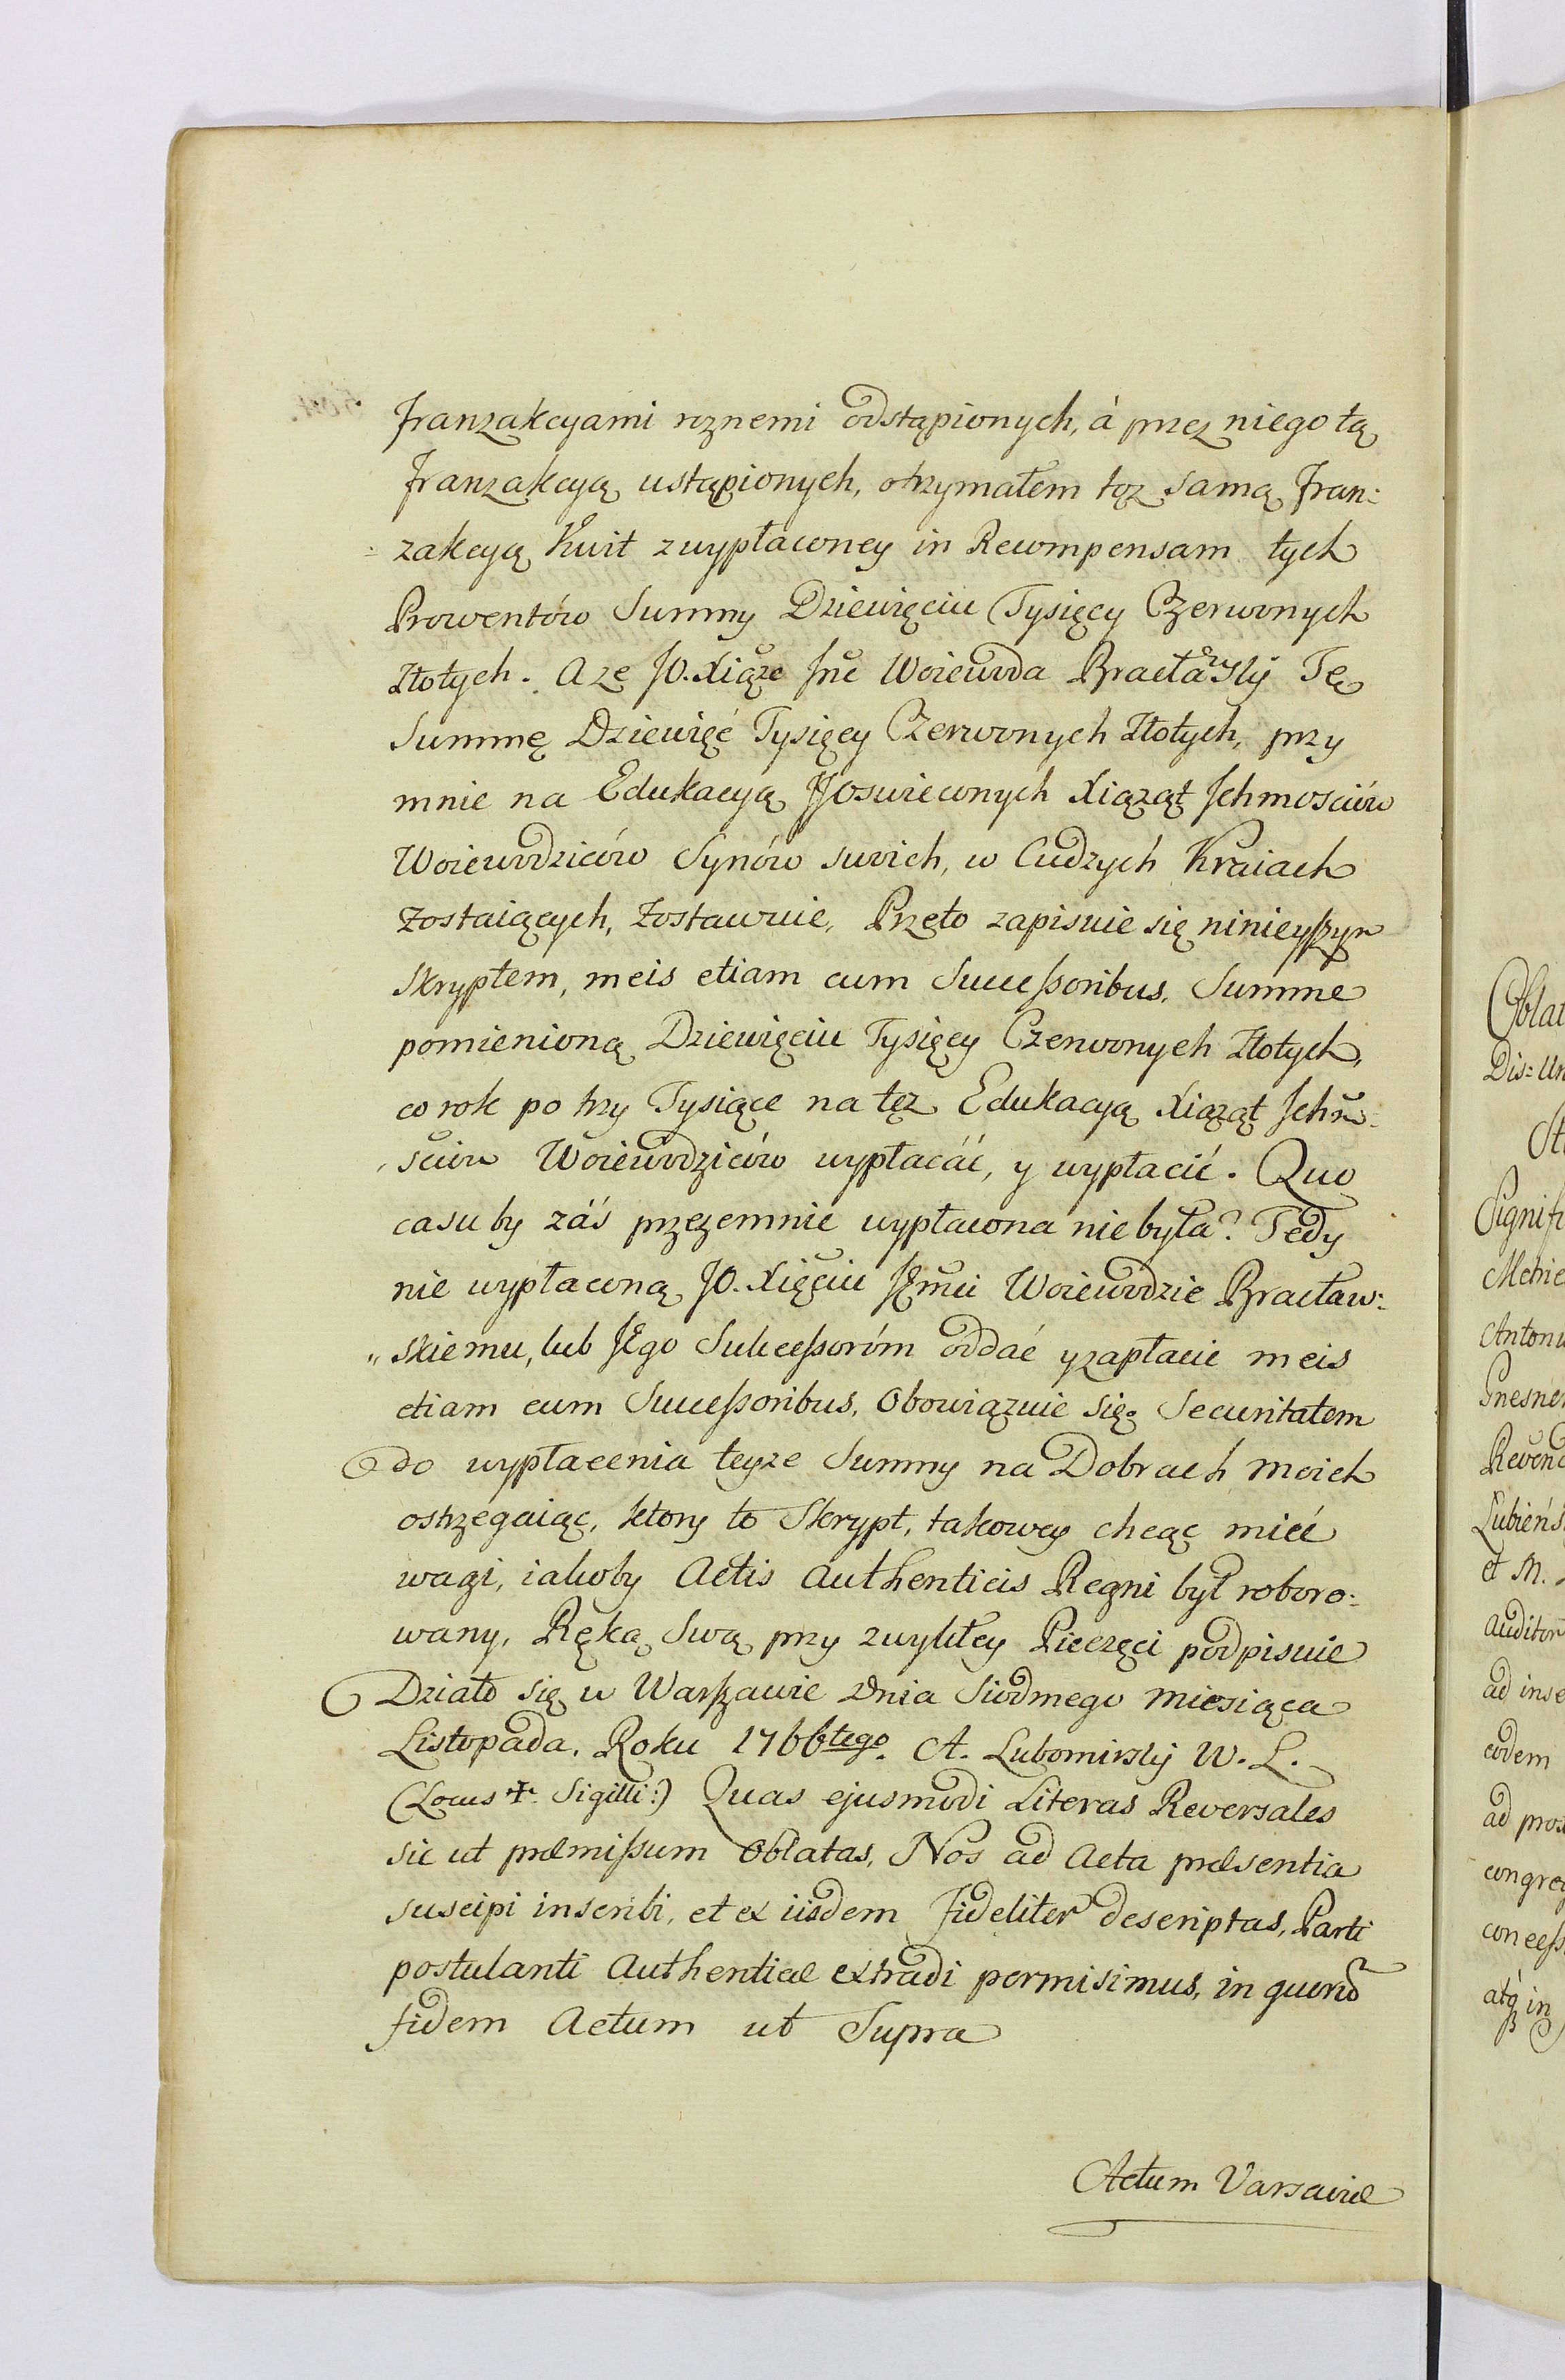 Tranzakcyami roznemi odstąpionych, á przez niego tą
Tranzakcyą ustąpionych, otrzymałem tąz samą Tran:
zakcyą Kwit z wypłaconey in Recompensam tych
Prowentów Summy Dziewięciu Tysięcy Czerwonych
Złotych. A ze JO. Xiąze Jmć Woiewoda Bracławski Tę
Summę Dziewięć Tysięcy Czerwonych Złotych, przy
mnie na Edukacyą JJOswieconych Xiąząt Ichmosciów
Woiewodziców Synów swoich, w Cudzych Kraiach
zostaiących, zostawuie, Przeto zapisuie się ninieyszym
Skryptem, meis etiam cum Successoribus, Summe
pomienioną Dziewięciu Tysięcy Czerwonych Złotych,
co rok po trzy Tysiące na tęz Edukacyą Xiąząt Ichmo:
sciów Woiewodziców wypłacáć, y wypłacić. Quo
casu by záś przezemnie wypłacona nie była? Tedy
nie wypłaconą JO. Xięciu JEmci Woiewodzie Bracław:
skiemu, lub JEgo Sukcessoróm oddać y zapłacic meis
etiam cum Successoribus, Obowiązuie się. Securitatem
do wypłacenia teyze Summy na Dobrach moich
ostrzegaiąc, ktory to Skrypt, takowey chcąc mieć
wagi, iakoby Actis Authenticis Regni był roboro:
wany, Ręką Swą przy zwykłey Pieczęci podpisuie
Działo się w Warszawie Dnia Siodmego Miesiąca
Listopada, Roku 1766tego. A. Lubomirski W. L.
(Locus ✝. Sigilli:) Quas ejusmodi Literas Reversales
sic ut præmissum Oblatas, Nos ad Acta præsentia
suscipi inscribi, et ex iisdem fideliter descriptas, Parti
postulanti Authenticæ extradi permisimus, in quorũ
fidem Actum ut Supra
Actum Varsaviæ